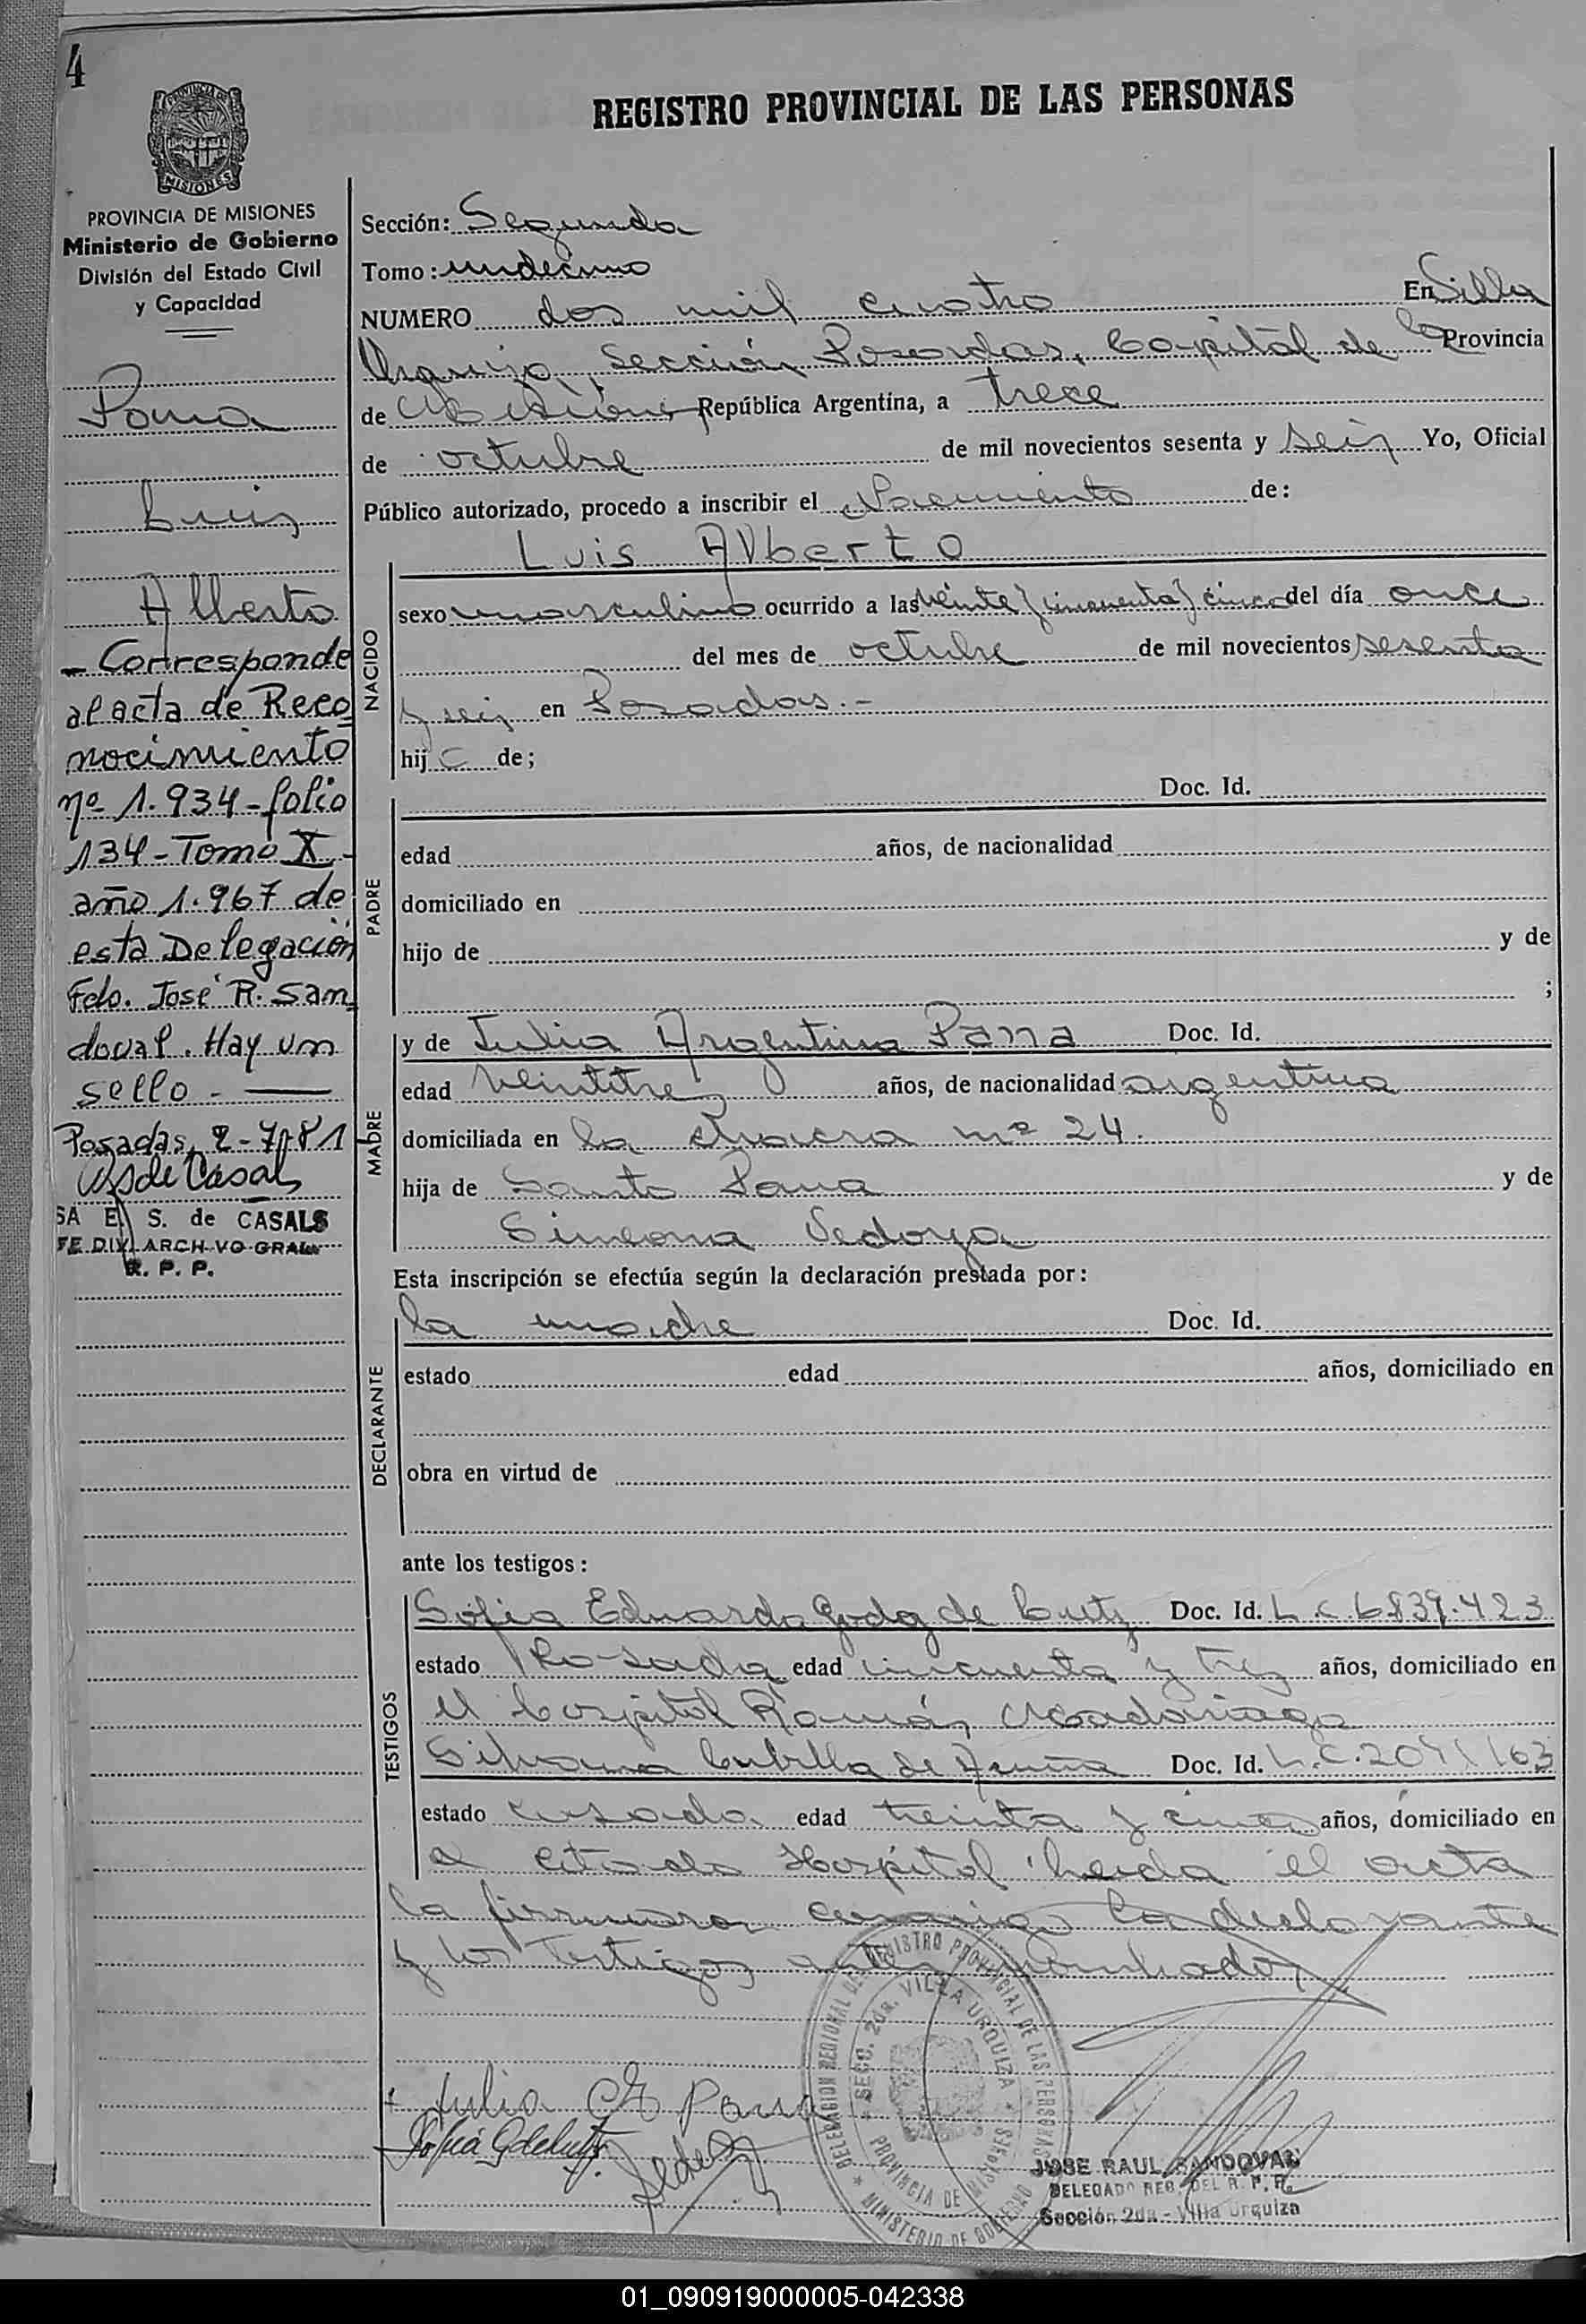 4
REGISTRO PROVINCIAL DE LAS PERSONAS
PROVINCIA DE
MISIONES
PROVINCIA DE MISIONES
Ministerio de Gobierno
División del Estado Civil
y Capacidad
Luis
Alberto
- Corresponde
al acta de Reco
nocimiento
nº 1.934 - folio
134 - Tomo X -
año 1.967 de
esta Delegación
Fdo. José R. San
doval. Hay un
sello -
Posadas, 2-7-81
SA E. S. de CASALS
FE DIV. ARCHIVO GRAL
R. P. P.
Sección: Segunda
Tomo: undecimo
NUMERO dos mil cuatro En Villa
Urquiza, Sección Posadas, Capital de la Provincia
de Misiones República Argentina, a trece
de octubre de mil novecientos sesenta y seis Yo, Oficial
Público autorizado, procedo a inscribir el Nacimiento de:
Luis Alberto
NACIDO
sexo masculino ocurrido a las veinte y cincuenta y cinco del día once
del mes de octubre de mil novecientos sesenta
y seis en Posadas.-
hij o de;
PADRE
Doc. Id.
edad años, de nacionalidad
domiciliado en
hijo de y de
;
MADRE
y de Julia Argentina Doc. Id.
edad veintitres años, de nacionalidad argentina
domiciliada en la chacra nº 24.
hija de Santo y de
Simeona Sedoya
Esta inscripción se efectúa según la declaración prestada por:
DECLARANTE
la madre Doc. Id.
estado edad años, domiciliado en
obra en virtud de
ante los testigos:
TESTIGOS
Sofia Eduarda de Doc. Id. L.C. 6839.423
estado edad cincuenta y tres años, domiciliado en
el Hospital Ramón Madariaga
Silvana Cubilla de Doc. Id. L.C. 2091163
estado casada edad treinta y cinco años, domiciliado en
el citado Hospital leida el acta
la firmaron conmigo la declarante
y los testigos antes nombrados
Julia
DELEGACION REGIONAL DEL REGISTRO PROVINCIAL DE LAS PERSONAS
SECC. 2da. VILLA URQUIZA
PROVINCIA DE MISIONES
MINISTERIO DE GOBIERNO
JOSE RAUL SANDOVAL
DELEGADO REG. DEL R. P. P.
Sección 2da - Villa Urquiza
01_090919000005-042338